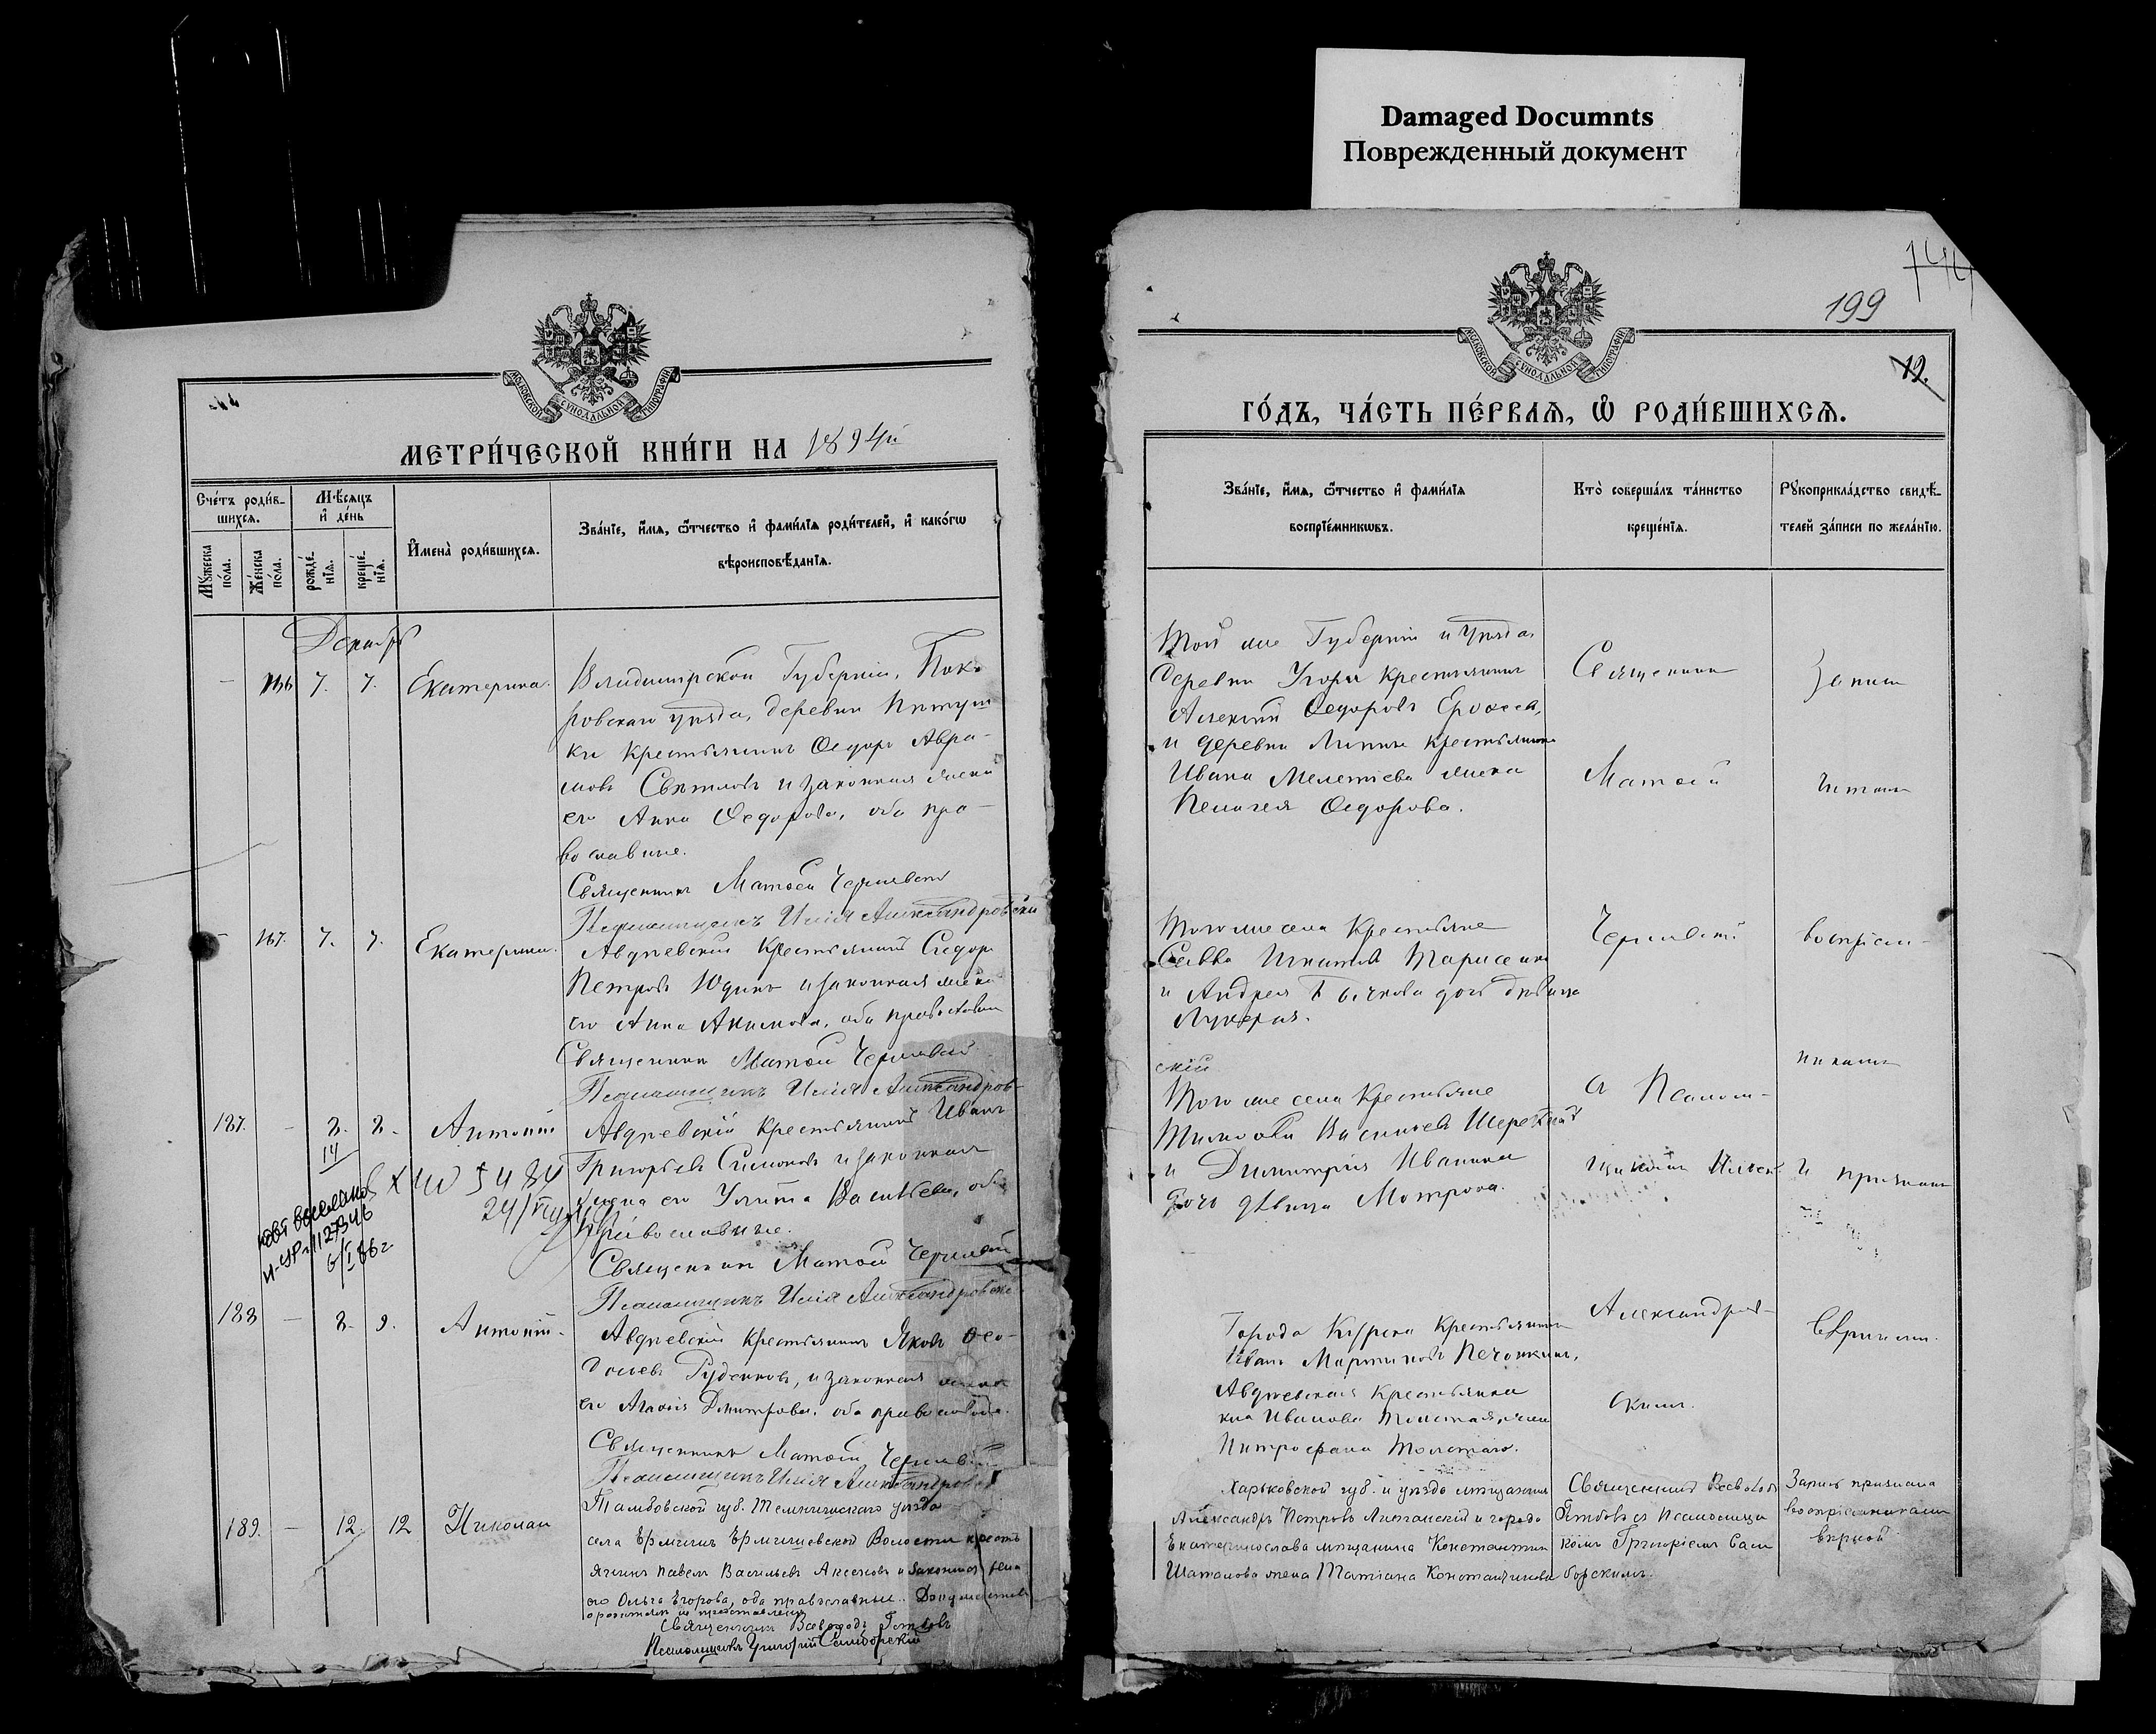 Damaged Documnts
Поврежденный документ
МОСКОВСКОЙ СѴНОДАЛЬНОЙ ТИПОГРАФІИ
МЕТРИ́ЧЕСКОЙ КНИ́ГИ НА 1894й
Сче́тъ роди́в-
шихсѧ.
Мꙋ́жеска по́ла.
Же́нска по́ла.
Мѣ́сѧцъ и҆ де́нь
рожде́нїѧ.
креще́нїѧ.
И҆мена̀ роди́вшихсѧ.
Зва́нїе, и҆́мѧ, ѻ҆́тчество и҆ фами́лїѧ роди́телей, и҆ како́гѡ
вѣроисповѣ́данїѧ.
Декабрь
166 7. 7. Екатерина.
Владимірской Губерніи, Пок-
ровскаго уѣзда, деревни Питуш-
ки крестьянинъ Ѳедоръ Авра-
мовъ Свѣтловъ и законная жена
его Анна Ѳедорова, оба пра-
вославные.
Священникъ Матѳей Чернявскій
Псаломщикъ Илія Александровскій
167. 7. 7. Екатерина.
Авдѣевскій крестьянинъ Сидоръ
Петровъ Юдинъ и законная жена
его Анна Акимова, оба православные
Священникъ Матѳей Чернявскій
Псаломщикъ Илія Александров-
187. 8. 8. Антоній
14
Авдѣевскій крестьянинъ Иванъ
Григорьевъ Симоновъ и законная
жена его Улита Васильева, оба
православные.
5484
24/VIII
6/I 86 г
Священникъ Матѳей Чернявскій
Псаломщикъ Илія Александровскій
188 8. 9. Антоній.
Авдѣевскій крестьянинъ Яковъ Ѳео-
Руденковъ, и законная жена
его Агафія Дмитрова, оба православные.
Священникъ Матѳей Чернявскій
Псаломщикъ Илія Александровскій
189. 12. 12 Николай
Тамбовской губ. Темниковскаго уѣзда
села Ермишь Ермишевской Волости кресть
янинъ Павелъ Васильевъ Аксеновъ и законная жена
его Ольга Егорова, оба православные. Документовъ
о родителяхъ не представлено
Священникъ Всеволодъ
Псаломщикъ Григорій Самборскій
744
199
12.
МОСКОВСКОЙ СѴНОДАЛЬНОЙ ТИПОГРАФІИ
ГО́ДЪ, ЧА́СТЬ ПЕ́РВАѦ, Ѡ҆ РОДИ́ВШИХСѦ.
Зва́нїе, и҆́мѧ, ѻ҆́тчество и҆ фами́лїѧ
воспрїе́мникѡвъ.
Кто̀ соверша́лъ та́инство
креще́нїѧ.
Рꙋкоприкла́дство свидѣ́-
телей за́писи по жела́нїю.
Той же Губерніи и уѣзда,
деревни Угоры крестьянинъ
Алексій Ѳедоровъ Ерофеевъ,
и деревни Липны крестьянина
Ивана Мелетіева жена
Пелагея Ѳедорова.
Священникъ
Матѳей
Запись
читана
Того же села крестьяне
Савва Игнатовъ Тарасенко
и Андрея Бычкова дочь дѣвица
Лукерья.
Чернявскій
воспріем-
скій
Того же села крестьяне
Тимоѳей Васильевъ
и Димитрія Иванина
дочь дѣвица Мотрона.
съ Псалом-
щикомъ Иліей
никамъ
и признана
Города Курска крестьянинъ
Иванъ Мартыновъ Печонкинъ,
Авдѣевская крестьянка
Иванова Толстая, жена
Митрофана Толстаго.
Александров-
скимъ.
вѣрною.
Харьковской губ. и уѣзда мѣщанинъ
Александръ Петровъ Лысанскій и города
Екатеринослава мѣщанина Константина
Шаталова жена Татіана Константинова
Священникъ Всеволодъ
съ Псаломщи
комъ Григоріемъ Сам
борскимъ.
Запись признана
воспріемниками
вѣрною